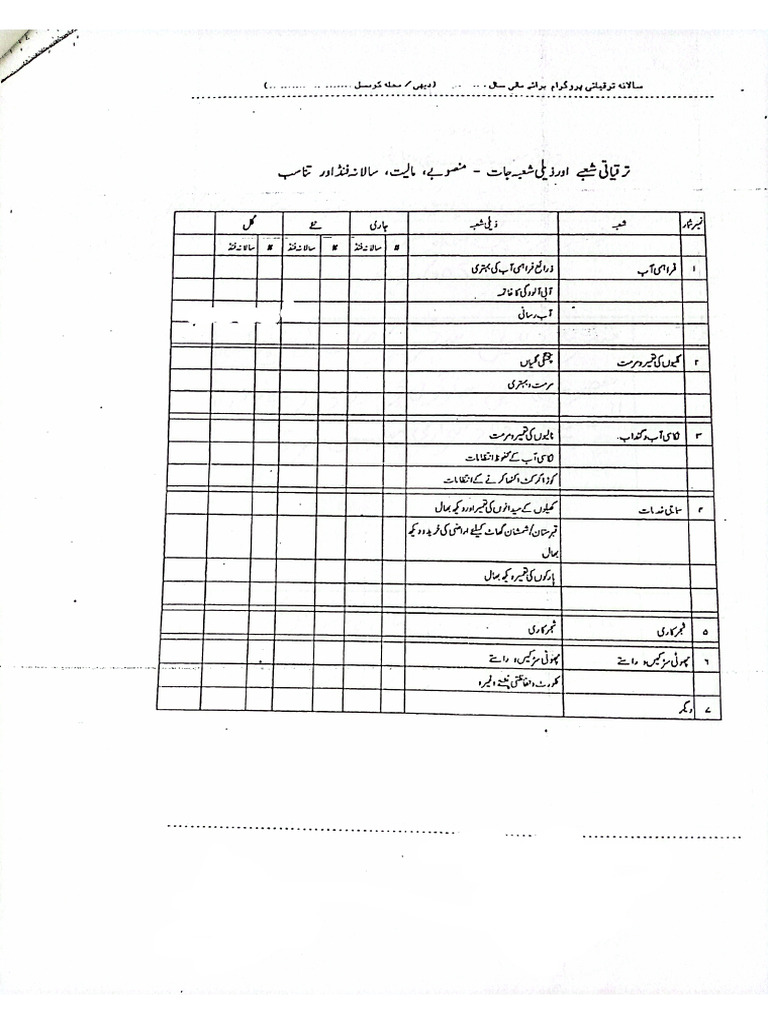 سالانہ ترقیاتی پروگرام برائے مالی سال ........ (دیہی / محلہ کونسل ....... .. ....... ..)
ترقیاتی شعبے اور ذیلی شعبہ جات - منصوبے، مالیت، سالانہ فنڈ اور تناسب
نمبر شمار شعبہ ذیلی شعبہ جاری نئے کل
# سالانہ فنڈ # سالانہ فنڈ # سالانہ فنڈ
۱ فراہمی آب ذرائع فراہمی آب کی بہتری
آبی آلودگی کا خاتمہ
آب رسانی
۲ گلیوں کی تعمیر و مرمت پختگی گلیاں
مرمت و بہتری
۳ نکاسی آب و گنداب نالیوں کی تعمیر و مرمت
نکاسی آب کے محفوظ انتظامات
کوڑا کرکٹ اکٹھا کرنے کے انتظامات
۴ سماجی خدمات کھیلوں کے میدانوں کی تعمیر اور دیکھ بھال
قبرستان/شمشان گھاٹ کیلئے اراضی کی خرید و دیکھ
بھال
پارکوں کی تعمیر و دیکھ بھال
۵ شجرکاری شجرکاری
۶ چھوٹی سڑکیں، راستے چھوٹی سڑکیں، راستے
حفاظتی پشتے وغیرہ
۷ دیگر